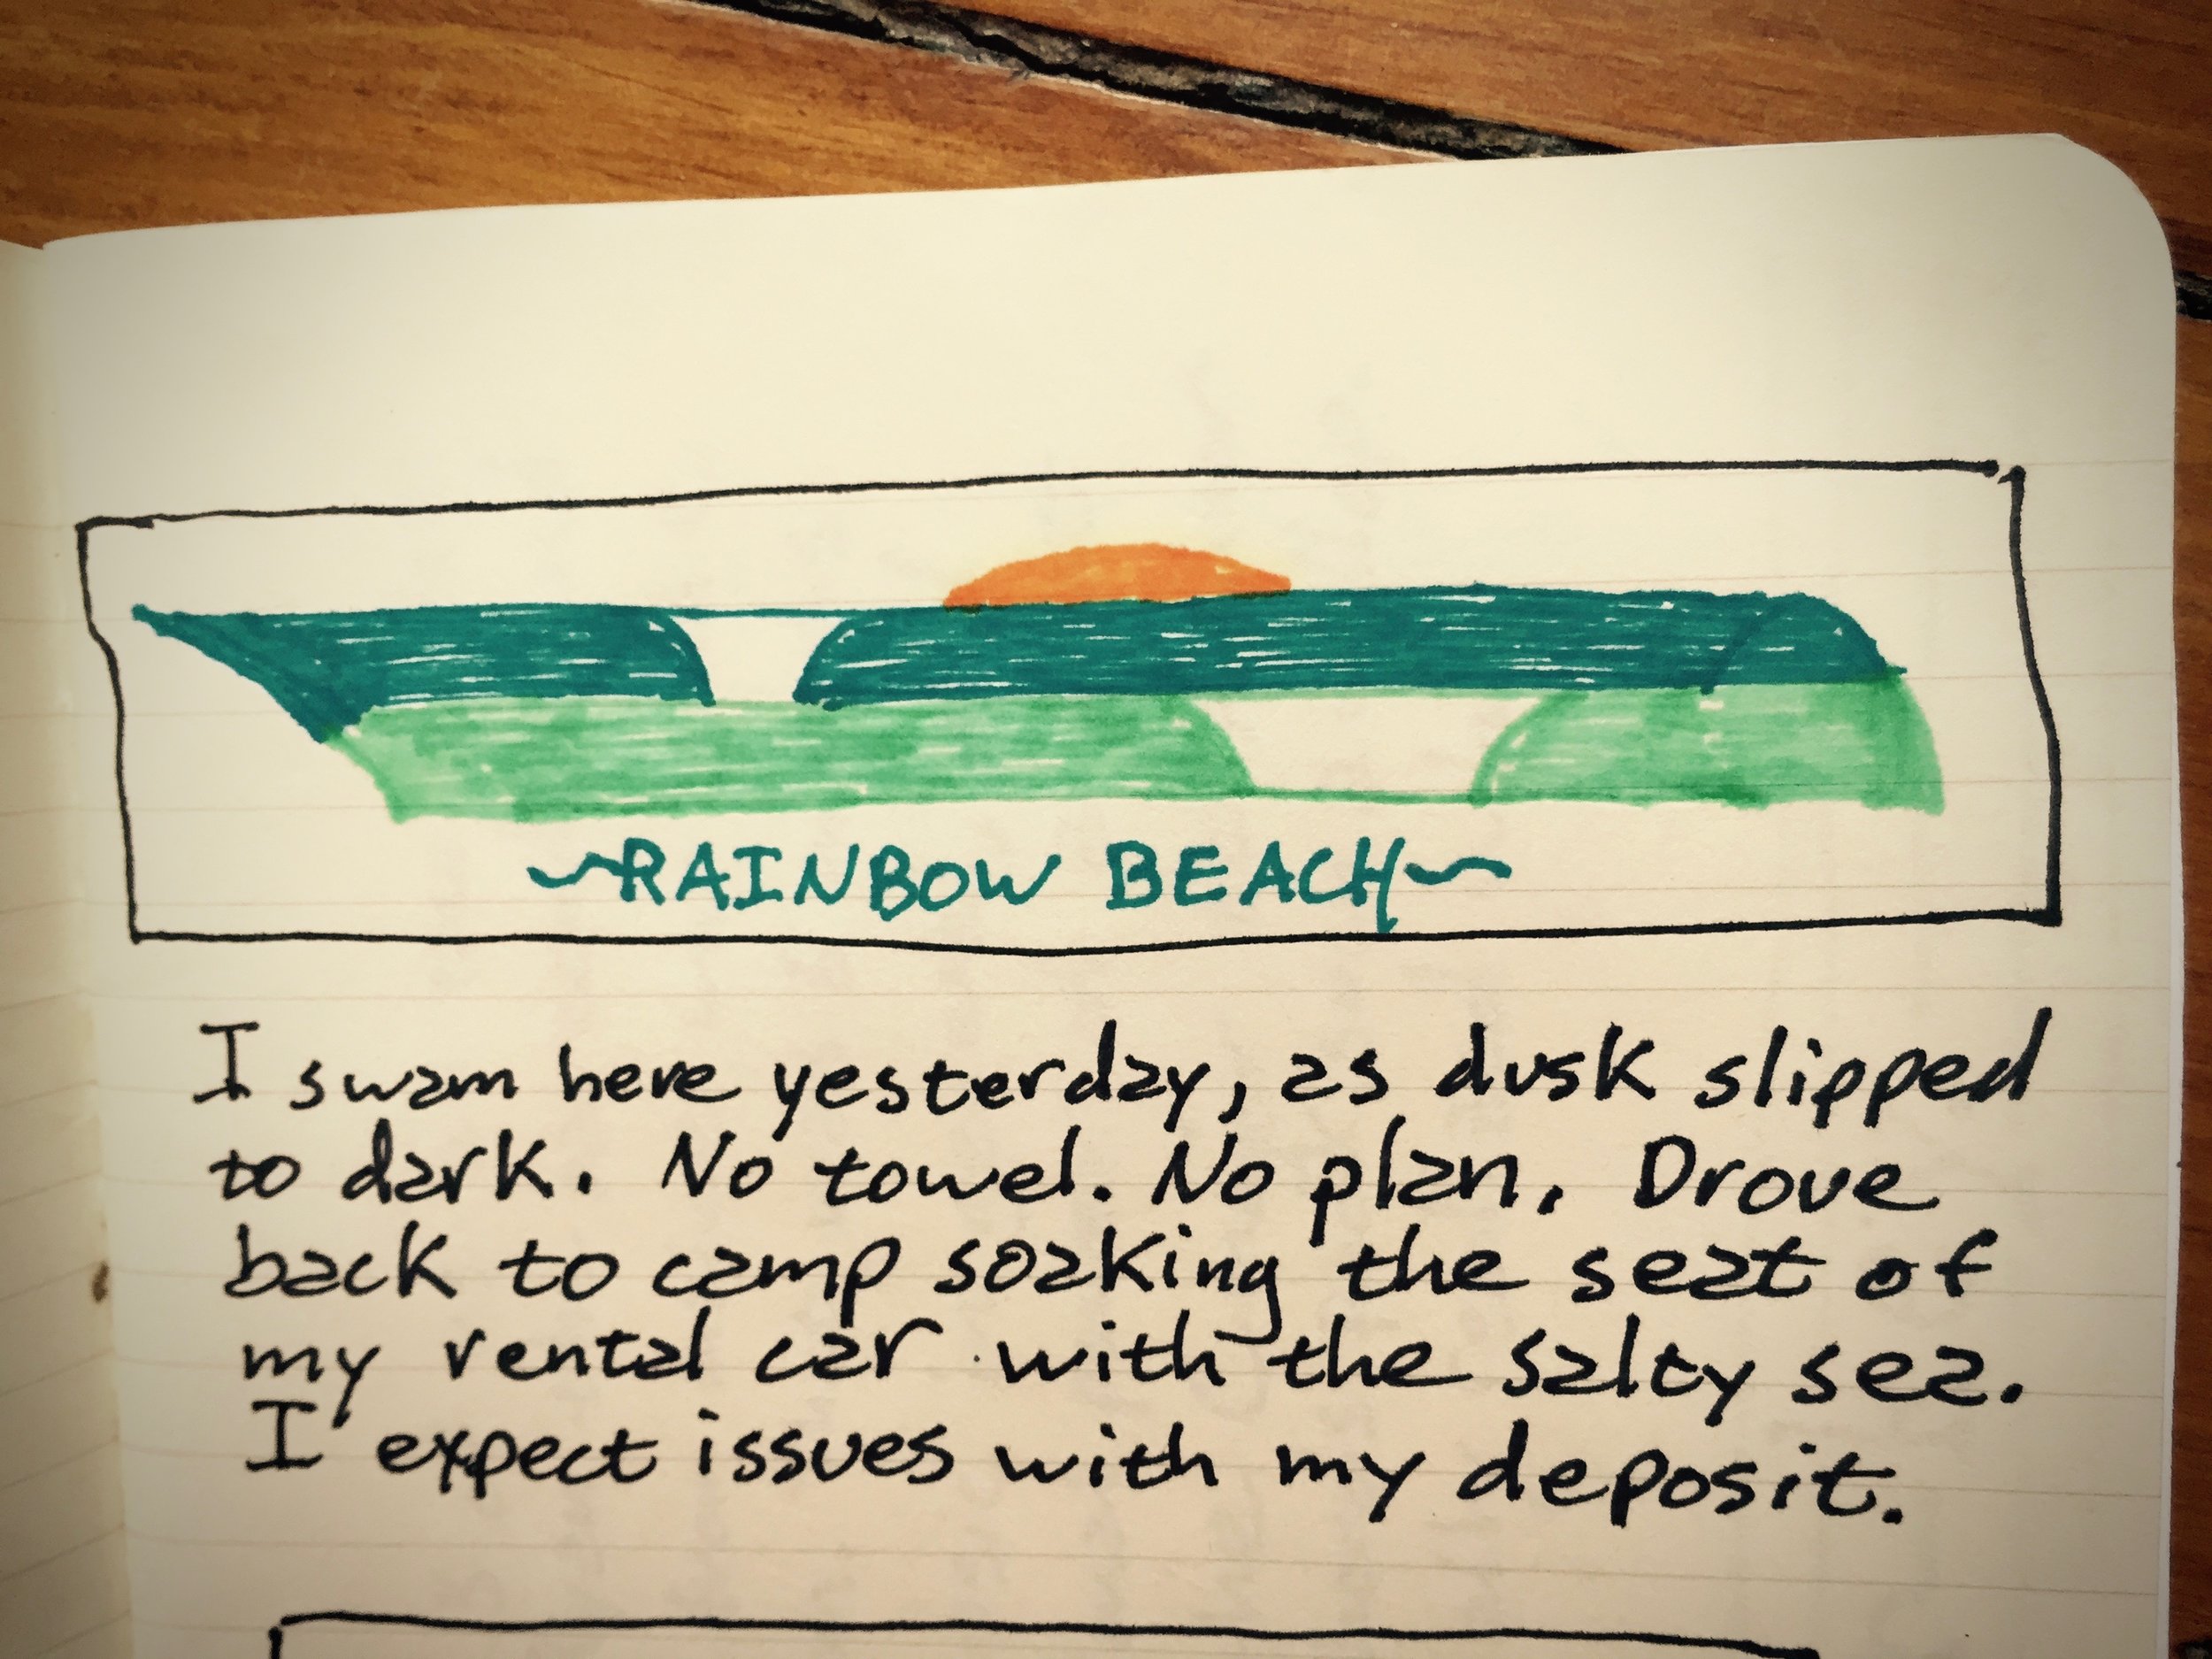 ~RAINBOW BEACH~
I swam here yesterday, as dusk slipped
to dark. No towel. No plan. Drove
back to camp soaking the seat of
my rental car with the salty sea.
I expect issues with my deposit.